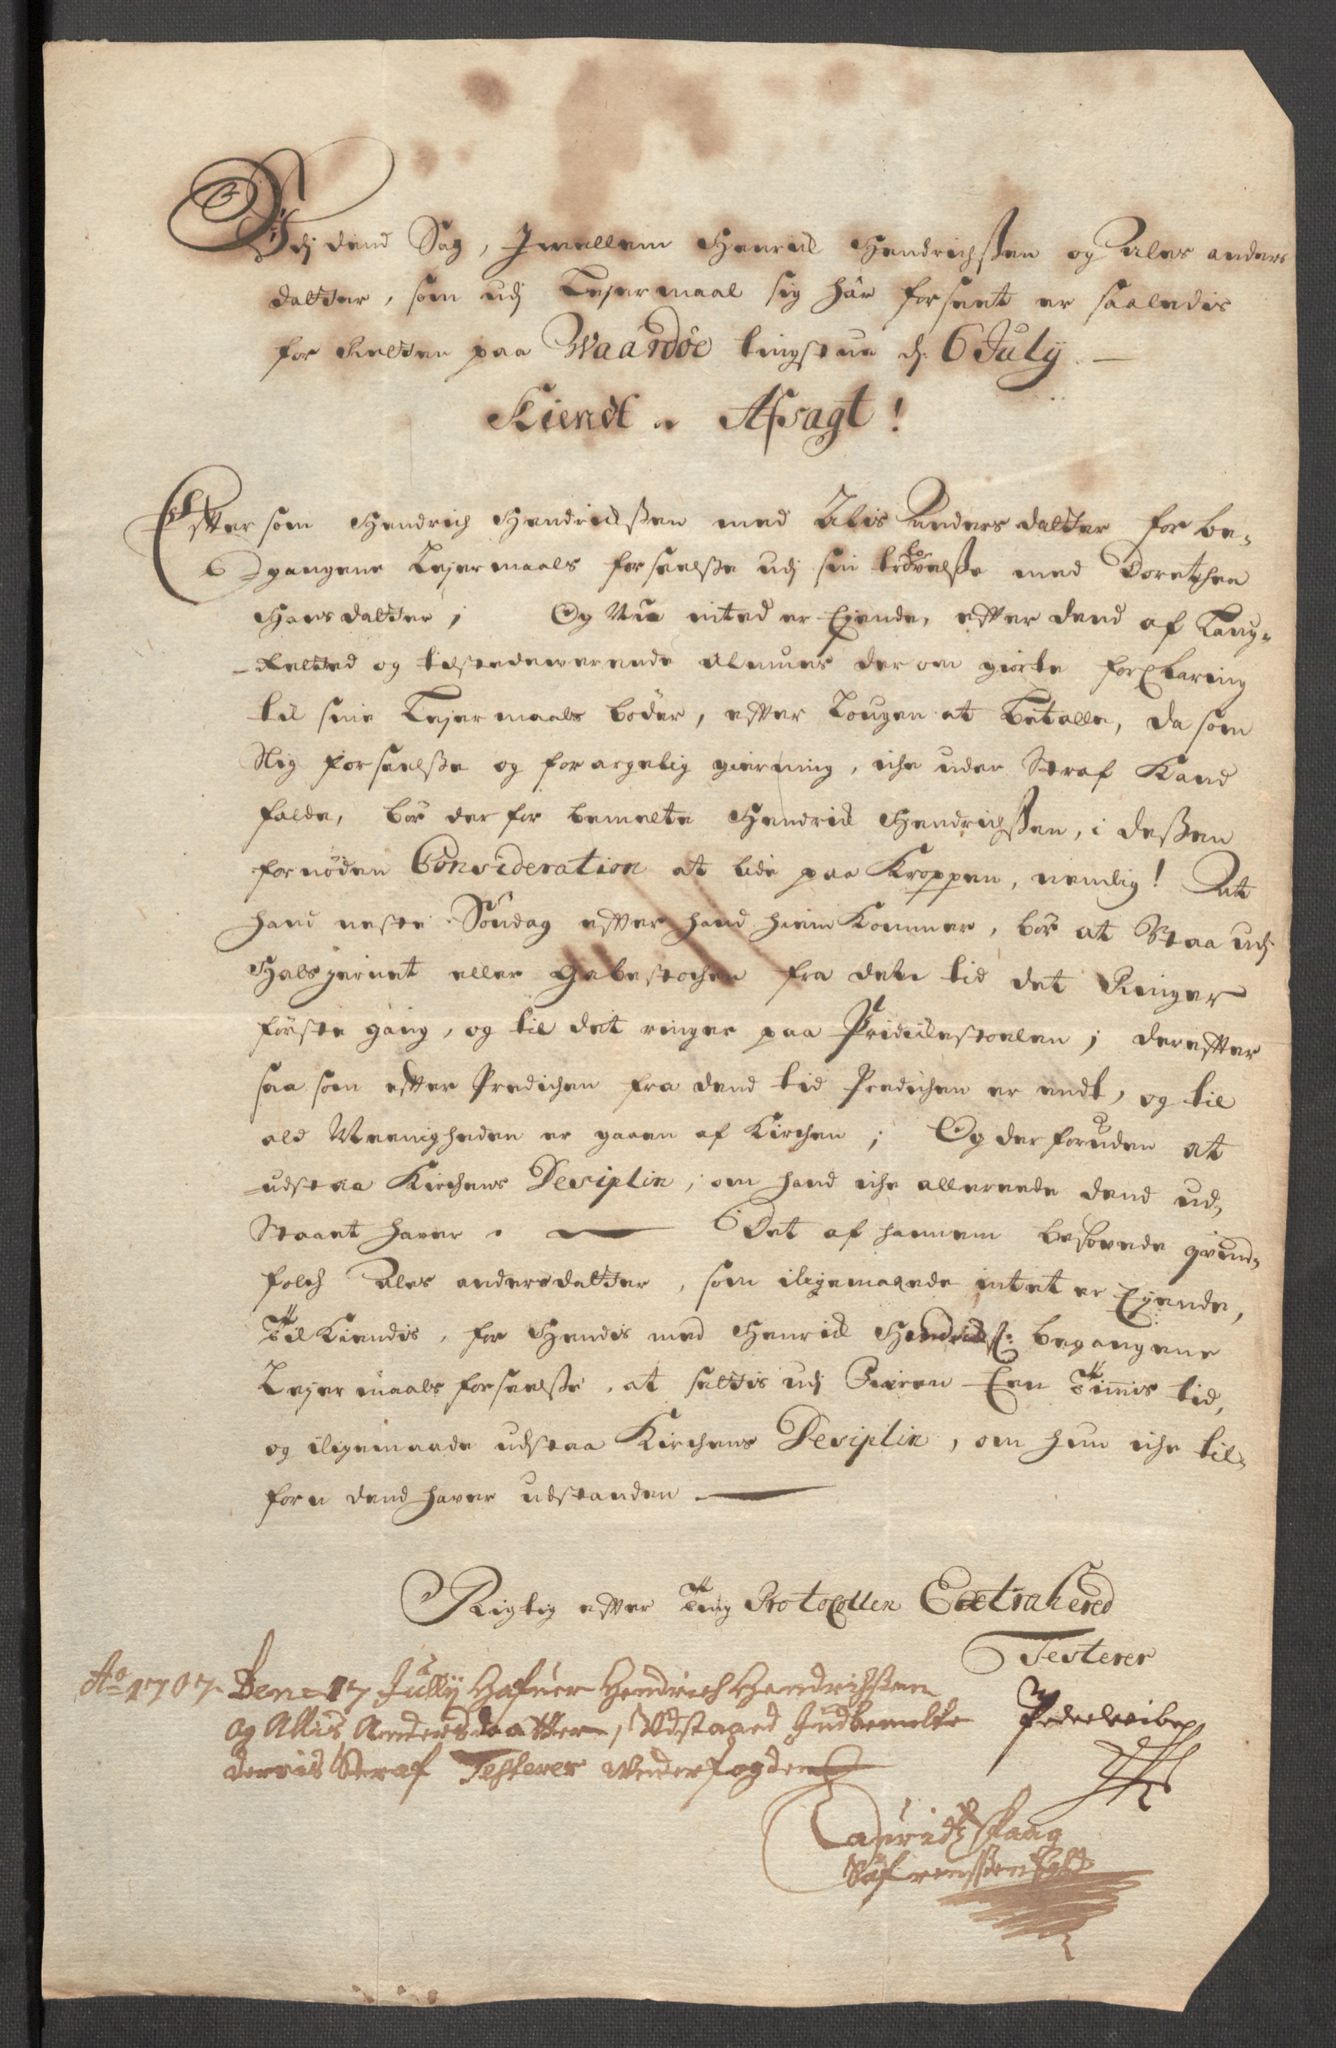 Udj dend Sag, Jmellem Henrich Hendrichßen og Ales anders
datter, som udj Lejermaal sig har forseet er saaledis
for Retten paa Waardöe tingstue d: 6 July
Kiendt og Afsagt!
Efftersom Hendrich Hendrichßen med Alis Anders datter for be-
gangene Lejermaals forseelße udj sin trolovelße med Dorethea
Hans datter; Og Nu inted er Ejende, effter dend af Laug-
Retted og tilstedewerende almues der om giorte forClaring
til sine Lejermaals böder, effter Lougen at betalle, da som
slig forseelße og forargelig gierning, iche uden Straf Kand
falde, bör derfor bemelte Hendrich Hendrichßen, i deßen
fornöden Consideration at lide paa Kroppen, nemlig! At
hand neste Söndag effter hand hiem Kommer, bör at Staa udj
Halsjernet eller Gabestochen fra den tid det Ringer
förste gang, og til det ringer paa Prædichestoelen; dereffter
saa som effter Predichen fra dend tid Predichen er endt, og til
ald Meenigheden er gaaen af Kirchen; Og der foruden at
udstaa Kirchens Desiplin, om hand iche allereede dend ud-
Staaet haver. Det af hannem besovede quind-
folch Ales andersdatter, som iligemaade intet er Ejende,
Til Kiendis, for Hendis med Henrich Hendrichß: begangene
Lejermaals forseelße, at settis udj Gieren Een Timis tid,
og iligemaade udstaa Kirchens Desiplin, om hun iche til-
forn dend haver udstanden
Rigtig effter Ting Protocollen Extrahered
Testerer
Ao 1707 Den 17 Jullij Hafuer Hendrich Hendrichßen
og Allis Anders daatter, Udstaaed Jndbemelte
derris Straf Testerer Underfogden
Lauridtz